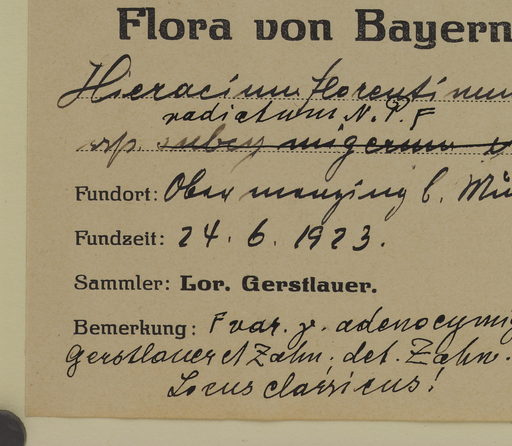 Flora von Bayern
Hieracium florentinum
radiatum N. P. F
ssp.
Fundort: Obermenzing b. Mü
Fundzeit: 24. 6. 1923.
Sammler: Lor. Gerstlauer.
Bemerkung: F var. γ. adenocymig
Gerstlauer et Zahn, det. Zahn.
Locus classicus!